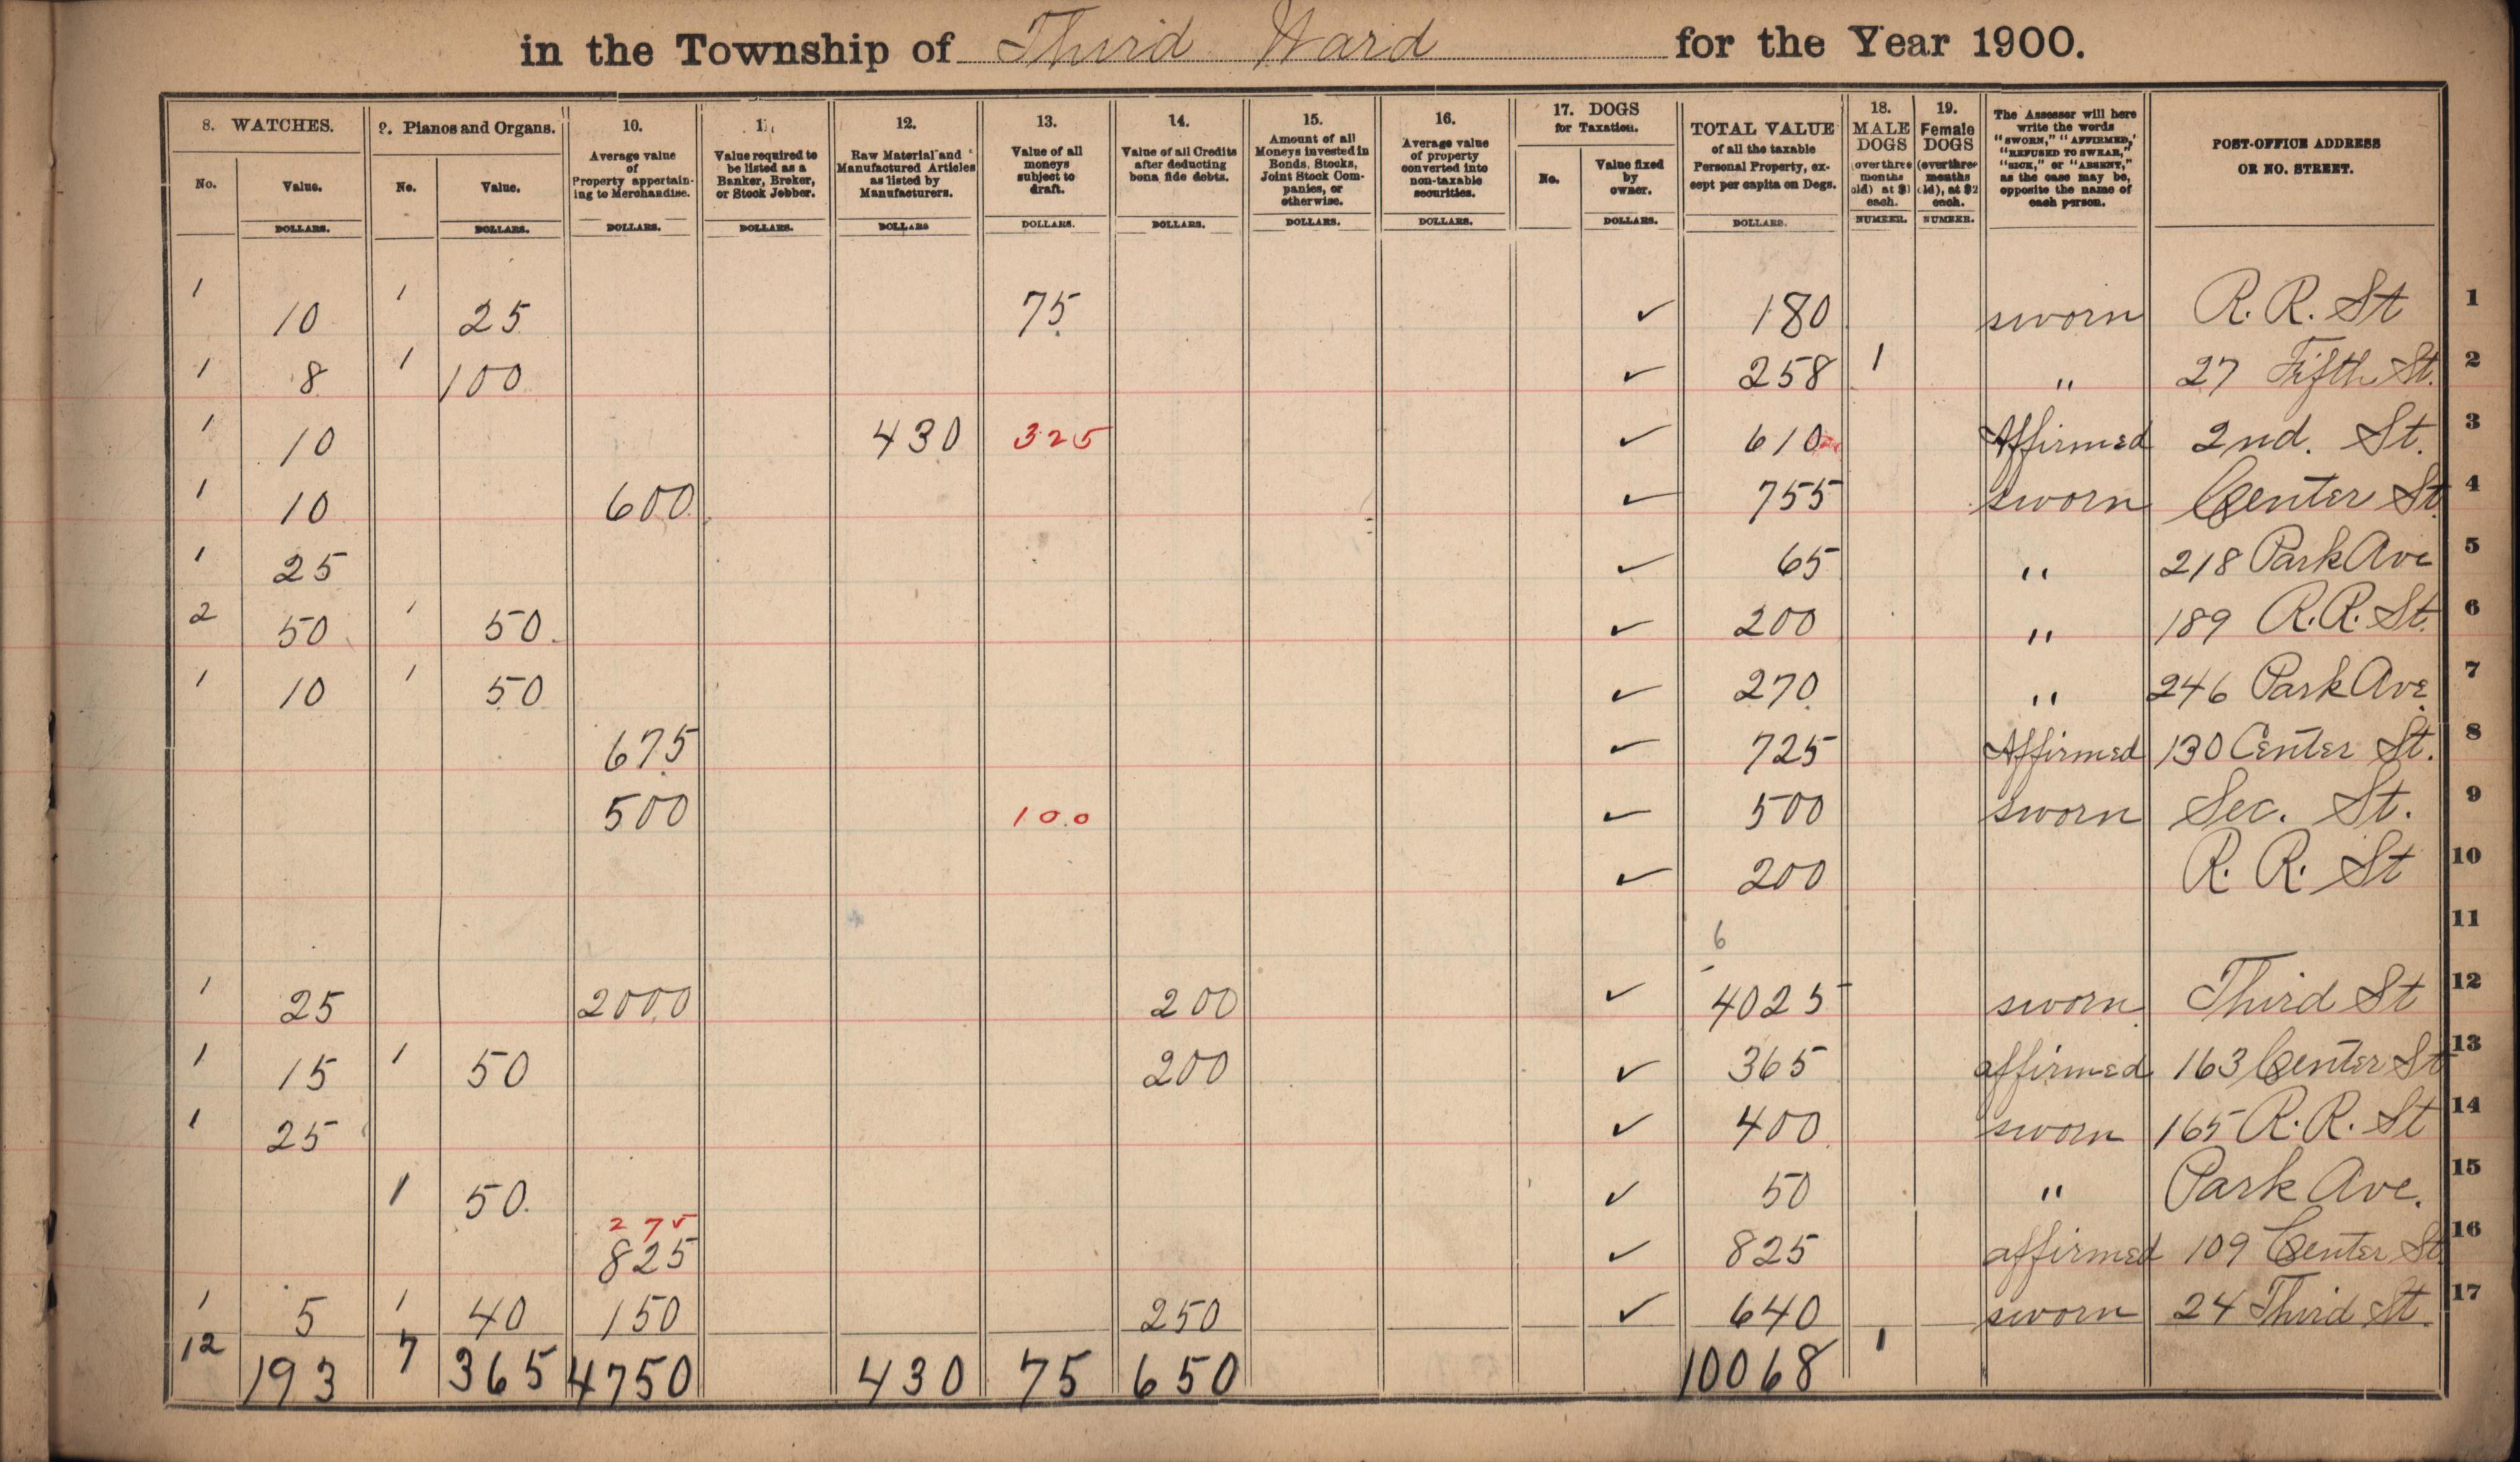 in the Township of Third Ward for the Year 1900.
8. WATCHES. 9. Pianos and Organs. 10. 11. 12. 13. 14. 15. 16. 17. DOGS for Taxation. TOTAL VALUE of all the taxable Personal Property, except per capita on Dogs. 18. MALE DOGS (over three months old) at $1 each. 19. Female DOGS (over three months old), at $2 each. The Assessor will here write the words "SWORN," "AFFIRMED," "REFUSED TO SWEAR," "SICK," or "ABSENT," as the case may be, opposite the name of each person. POST-OFFICE ADDRESS OR NO. STREET.
No. Value. No. Value. Average value of Property appertaining to Merchandise. Value required to be listed as a Banker, Broker, or Stock Jobber. Raw Material and Manufactured Articles as listed by Manufacturers. Value of all moneys subject to draft. Value of all Credits after deducting bona fide debts. Amount of all Moneys invested in Bonds, Stocks, Joint Stock Companies, or otherwise. Average value of property converted into non-taxable securities. No. Value fixed by owner.
DOLLARS. DOLLARS. DOLLARS. DOLLARS. DOLLARS DOLLARS. DOLLARS. DOLLARS. DOLLARS. DOLLARS. DOLLARS. NUMBER. NUMBER.
1 10 1 25 75 ✓ 180 sworn R. R. St 1
1 8 1 100 ✓ 258 1 " 27 Fifth St. 2
1 10 430 325 ✓ 610 Affirmed 2nd. St. 3
1 10 600 ✓ 755 sworn Center St. 4
1 25 ✓ 65 " 218 Park Ave 5
2 50 1 50 ✓ 200 " 189 R.R. St. 6
1 10 1 50 ✓ 270 " 246 Park Ave. 7
675 ✓ 725 Affirmed 130 Center St. 8
500 100 ✓ 500 sworn Sec. St. 9
✓ 200 R. R. St 10
11
6
1 25 2000 200 ✓ 4025 sworn Third St 12
1 15 1 50 200 ✓ 365 affirmed 163 Center St 13
1 25 ✓ 400 sworn 165 R. R. St 14
1 50 ✓ 50 " Park Ave. 15
275
825 ✓ 825 affirmed 109 Center St 16
1 5 1 40 150 250 ✓ 640 sworn 24 Third St. 17
12 193 7 365 4750 430 75 650 10068 1